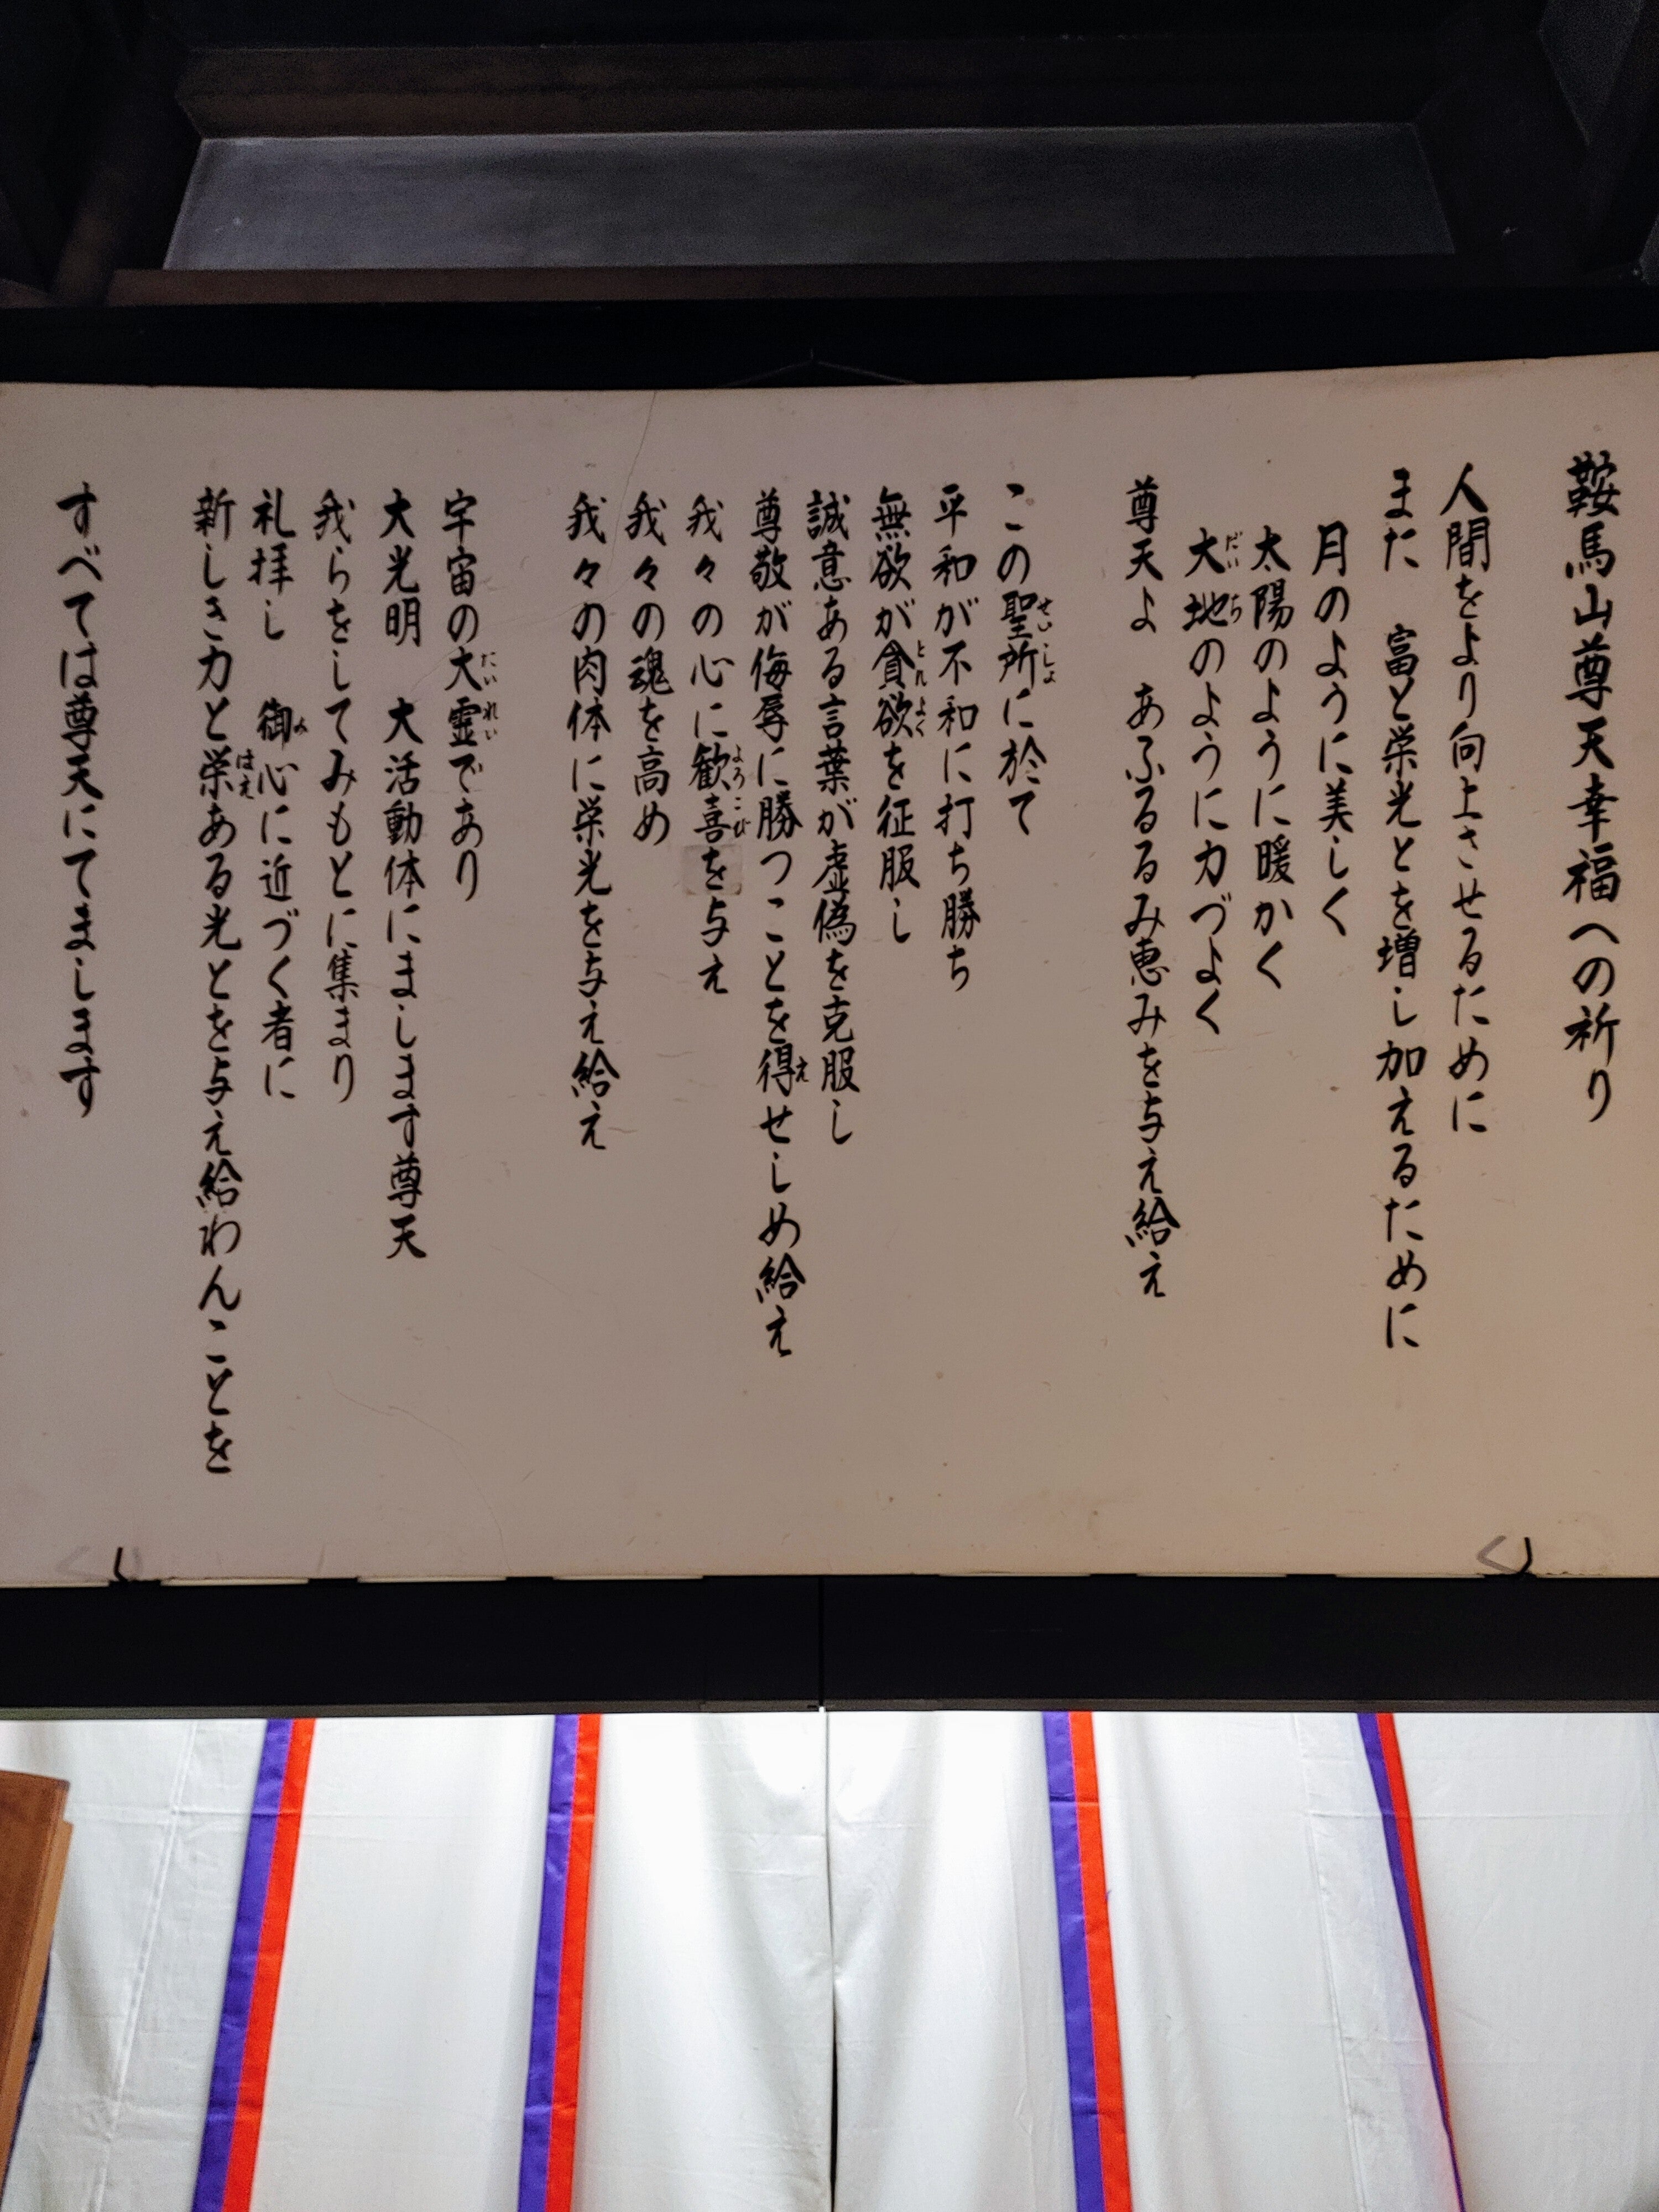 鞍馬山尊天幸福への祈り
人間をより向上させるために
また　富と栄光とを増し加えるために
月のように美しく
太陽のように暖かく
大地のように力づよく
だいち
尊天よ　あふるるみ恵みを与え給え
この聖所に於て
せいしょ
平和が不和に打ち勝ち
無欲が貪欲を征服し
とんよく
誠意ある言葉が虚偽を克服し
尊敬が侮辱に勝つことを得せしめ給え
え
我々の心に歓喜を与え
よろこび
我々の魂を高め
我々の肉体に栄光を与え給え
宇宙の大霊であり
たいれい
大光明　大活動体にまします尊天
我らをしてみもとに集まり
礼拝し　御心に近づく者に
み
新しき力と栄ある光とを与え給わんことを
はえ
すべては尊天にてまします